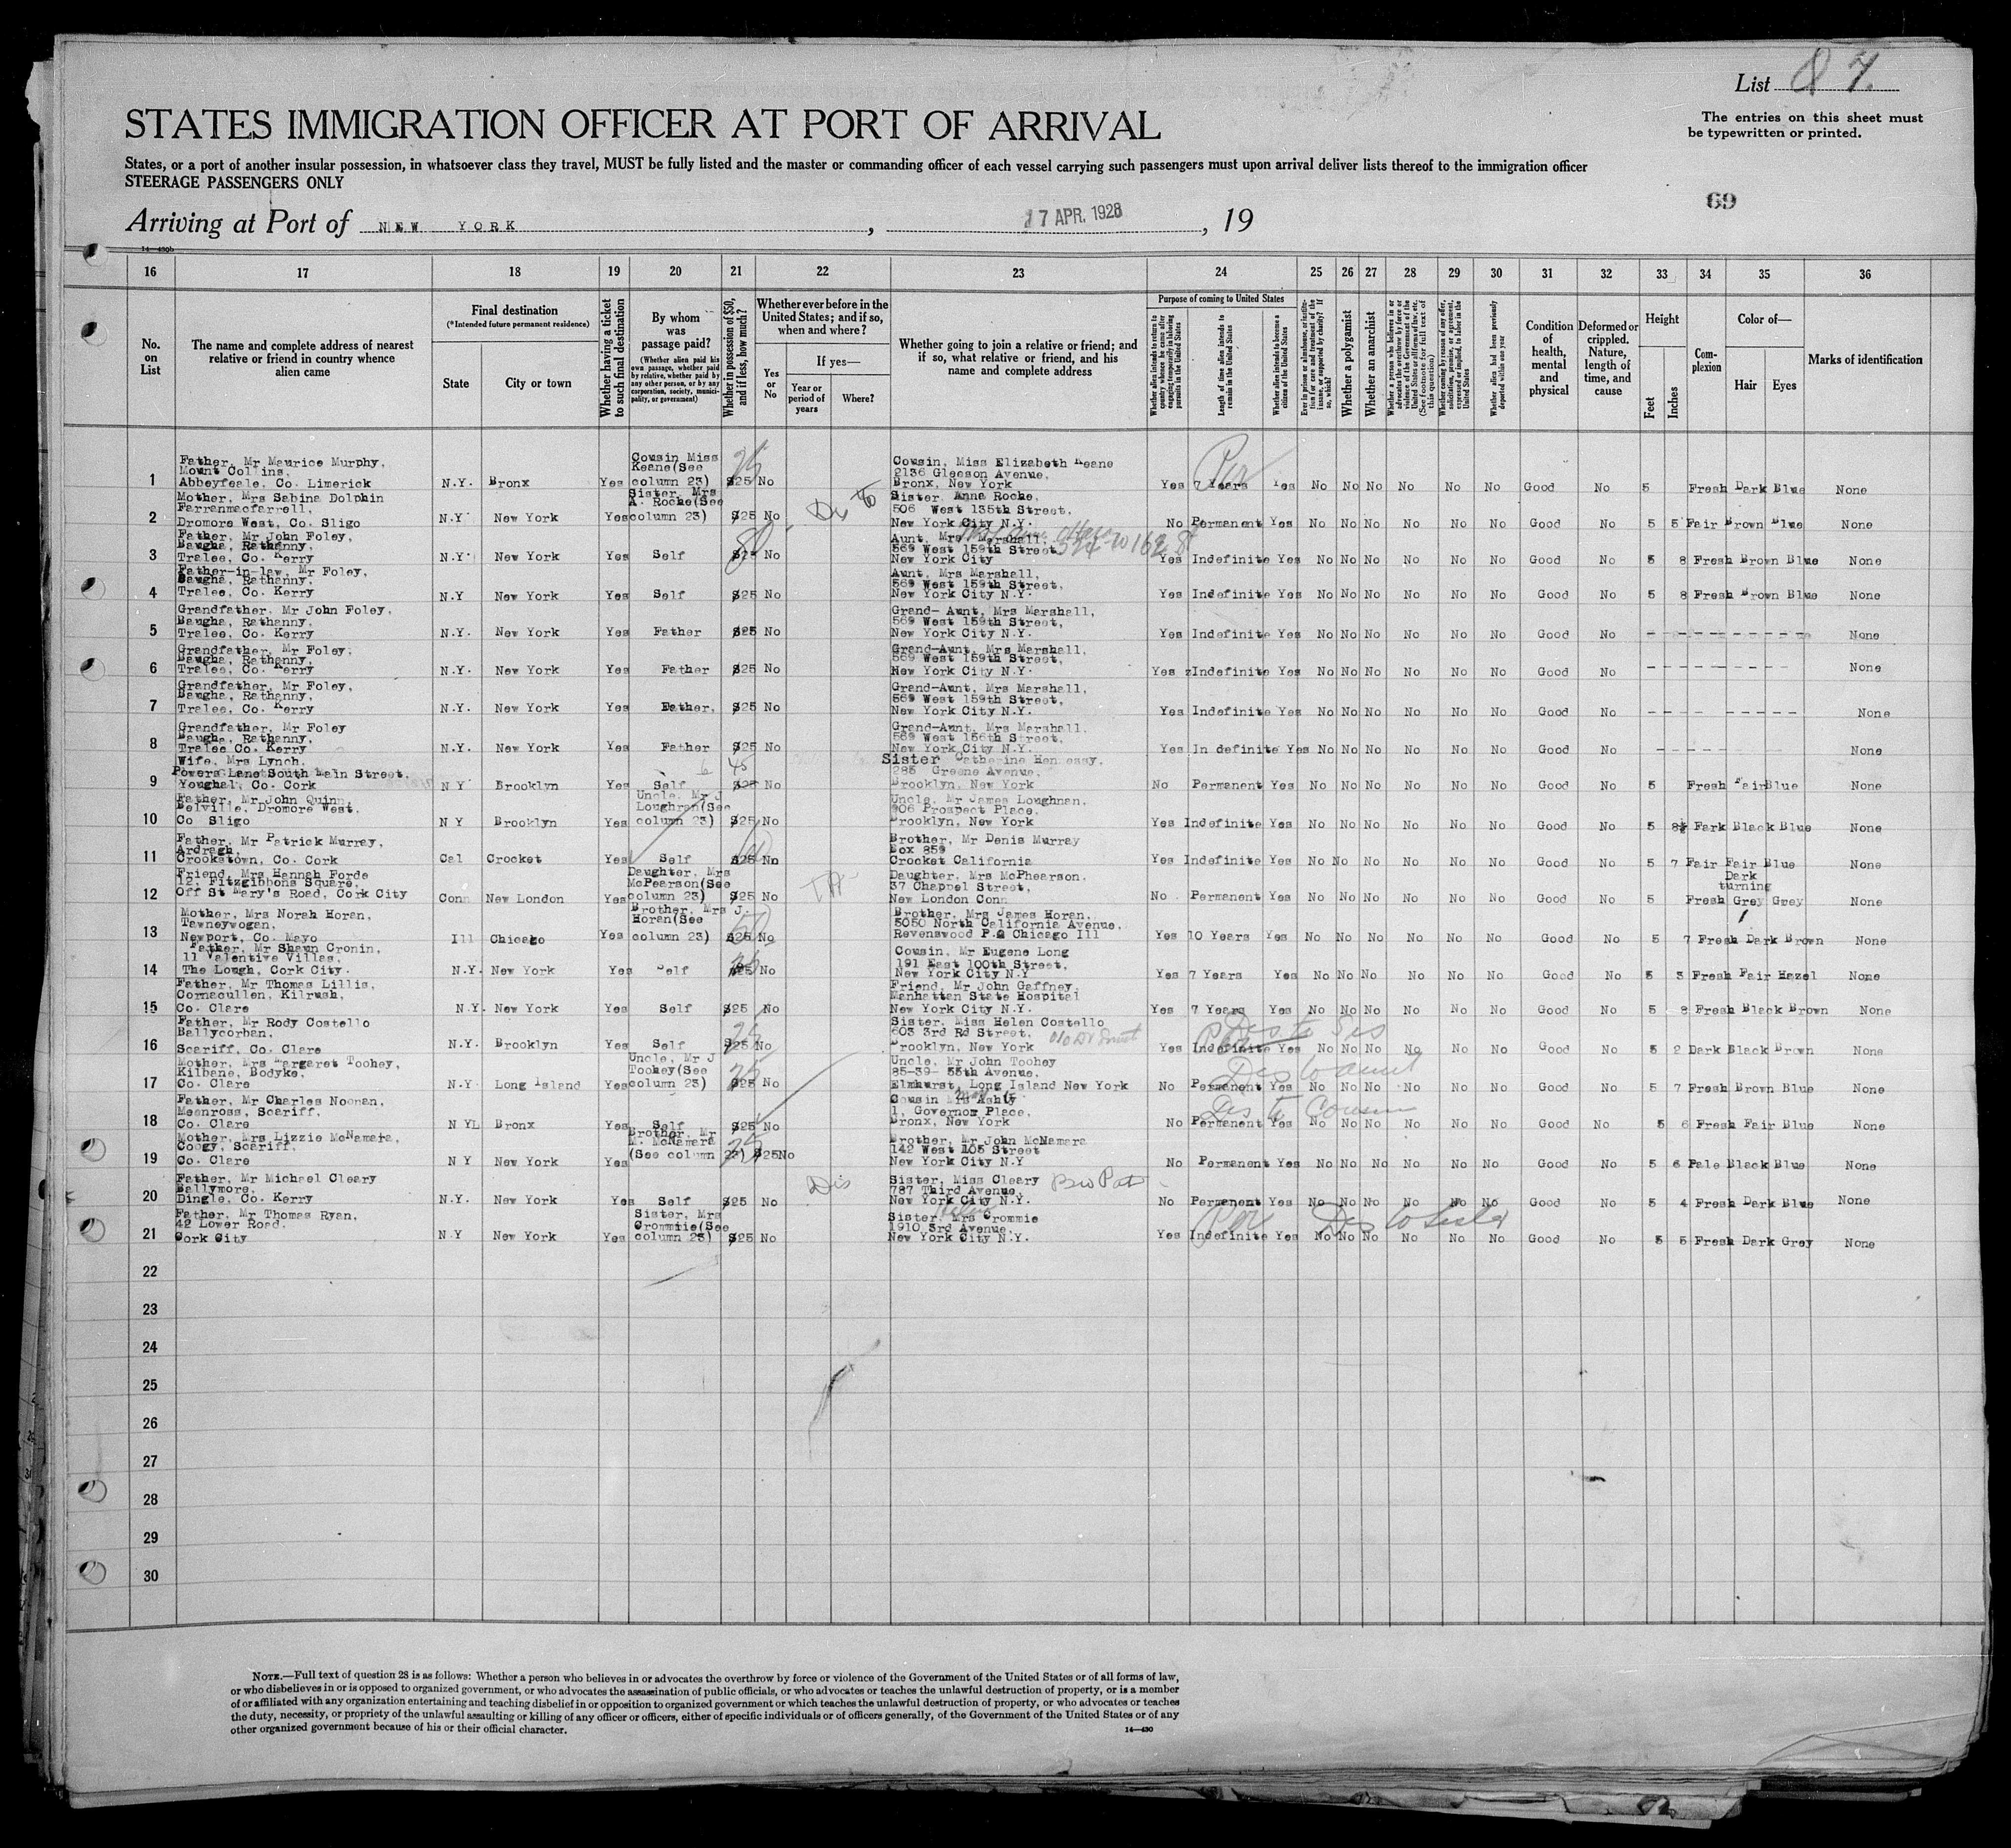 List 87.
The entries on this sheet must
be typewritten or printed.
STATES IMMIGRATION OFFICER AT PORT OF ARRIVAL
States, or a port of another insular possession, in whatsoever class they travel, MUST be fully listed and the master or commanding officer of each vessel carrying such passengers must upon arrival deliver lists thereof to the immigration officer
STEERAGE PASSENGERS ONLY
69
Arriving at Port of NEW YORK, 17 APR. 1928, 19
14—430b
16 17 18 19 20 21 22 23 24 25 26 27 28 29 30 31 32 33 34 35 36
No. on List
The name and complete address of nearest relative or friend in country whence alien came
Final destination
(*Intended future permanent residence)
State
City or town
Whether having a ticket to such final destination
By whom was passage paid?
(Whether alien paid his own passage, whether paid by relative, whether paid by any other person, or by any corporation, society, municipality, or government)
Whether in possession of $50, and if less, how much?
Whether ever before in the United States; and if so, when and where?
Yes or No
If yes—
Year or period of years
Where?
Whether going to join a relative or friend; and if so, what relative or friend, and his name and complete address
Purpose of coming to United States
Whether alien intends to return to country whence he came after engaging temporarily in laboring pursuits in the United States
Length of time alien intends to remain in the United States
Whether alien intends to become a citizen of the United States
Ever in prison or almshouse, or institution for care and treatment of the insane, or supported by charity? If so, which?
Whether a polygamist
Whether an anarchist
Whether a person who believes in or advocates the overthrow by force or violence of the Government of the United States or all forms of law, etc. (See footnote for full text of this question)
Whether coming by reason of any offer, solicitation, promise, or agreement, expressed or implied, to labor in the United States
Whether alien had been previously deported within one year
Condition of health, mental and physical
Deformed or crippled. Nature, length of time, and cause
Height
Feet
Inches
Complexion
Color of—
Hair
Eyes
Marks of identification
Father, Mr Maurice Murphy,
Mount Collins,
1 Abbeyfeale, Co. Limerick N.Y. Bronx Yes Cousin Miss Keane(See column 23) $25 No
Cousin, Miss Elizabeth Keane
2136 Gleeson Avenue,
Bronx, New York Yes 7 Years Yes No No No No No No Good No 5 Fresh Dark Blue None
Mother, Mrs Sabina Dolphin
Farranmacfarrell,
2 Dromore West, Co. Sligo N.Y New York Yes Sister, Mrs A. Roche(See column 23) $25 No
Sister Anna Roche,
506 West 135th Street,
New York City N.Y. No Permanent Yes No No No No No No Good No 5 5 Fair Brown Blue None
Father, Mr John Foley,
Baugha, Rathanny,
3 Tralee, Co. Kerry N.Y. New York Yes Self No
Aunt, Mrs Marshall,
569 West 159th Street
New York City Yes Indefinite Yes No No No No No No Good No 5 8 Fresh Brown Blue None
Father-in-law, Mr Foley,
Baugha, Rathanny,
4 Tralee, Co. Kerry N.Y New York Yes Self $25 No
Aunt, Mrs Marshall,
569 West 159th Street,
New York City N.Y. Yes Indefinite Yes No No No No No No Good No 5 8 Fresh Brown Blue None
Grandfather, Mr John Foley,
Baugha, Rathanny,
5 Tralee, Co. Kerry N.Y. New York Yes Father $25 No
Grand- Aunt, Mrs Marshall,
569 West 159th Street,
New York City N.Y. Yes Indefinite Yes No No No No No No Good No --------- None
Grandfather, Mr Foley,
Baugha, Rathanny,
6 Tralee, Co. Kerry N.Y. New York Yes Father $25 No
Grand-Aunt, Mrs Marshall,
569 West 159th Street,
New York City N.Y. Yes Indefinite Yes No No No No No No Good No -------- None
Grandfather, Mr Foley,
Baugha, Rathanny,
7 Tralee, Co. Kerry N.Y. New York Yes Father, $25 No
Grand-Aunt, Mrs Marshall,
569 West 159th Street,
New York City N.Y. Yes Indefinite Yes No No No No No No Good No ------- None
Grandfather, Mr Foley
Baugha, Rathanny,
8 Tralee Co. Kerry N.Y. New York Yes Father $25 No
Grand-Aunt, Mrs Marshall,
569 West 156th Street,
New York City N.Y. Yes In definite Yes No No No No No No Good No ------- None
Wife, Mrs Lynch,
Powers Lane South Main Street,
9 Youghal, Co. Cork N Y Brooklyn Yes Self 45 $25 No
Sister Catherine Hennessy,
285 Greene Avenue,
Brooklyn, New York No Permanent Yes No No No No No No Good No 5 Fresh Fair Blue None
Father, Mr John Quinn,
Belville, Dromore West,
10 Co Sligo N Y Brooklyn Yes Uncle, Mr J Loughran(See column 23) $25 No
Uncle, Mr James Loughnan,
906 Prospect Place,
Brooklyn, New York Yes Indefinite Yes No No No No No No Good No 5 8½ Fark Black Blue None
Father, Mr Patrick Murray,
Ardragh,
11 Crookstown, Co. Cork Cal Crocket Yes Self $25 No
Brother, Mr Denis Murray
Box 859
Crocket California Yes Indefinite Yes No No No No No No Good No 5 7 Fair Fair Blue None
Friend, Mrs Hannah Forde
12, Fitzgibbons Square,
12 Off St Mary's Road, Cork City Conn New London Yes Daughter, Mrs McPearson(See column 23) $25 No
Daughter, Mrs McPhearson,
37 Chappel Street,
New London Conn No Permanent Yes No No No No No No Good No 5 Fresh Dark turning Grey Grey None
Mother, Mrs Norah Horan,
Tawneywogan,
13 Newport, Co. Mayo Ill Chicago Yes Brother, Mrs J Horan(See column 23) $25 No
Brother, Mrs James Horan,
5050 North California Avenue,
Revenswood P.O Chicago Ill Yes 10 Years Yes No No No No No No Good No 5 7 Fresh Dark Brown None
Father, Mr Shawn Cronin,
11 Valentive Villas,
14 The Lough, Cork City. N.Y. New York Yes Self $25 No
Cousin, Mr Eugene Long
191 East 100th Street,
New York City N.Y Yes 7 Years Yes No No No No No No Good No 5 3 Fresh Fair Hazel None
Father, Mr Thomas Lillis,
Cornacullen, Kilrush,
15 Co. Clare N.Y. New York Yes Self $25 No
Friend, Mr John Gaffney,
Manhattan State Hospital
New York City N.Y. Yes 7 Years Yes No No No No No No Good No 5 8 Fresh Black Brown None
Father, Mr Rody Costello
Ballycorban,
16 Scariff, Co. Clare N.Y. Brooklyn Yes Self $25 No
Sister, Miss Helen Costello
603 3rd Rd Street,
Brooklyn, New York Yes Indefinite Yes No No No No No No Good No 5 2 Dark Black Brown None
Dis to Sis
Mother, Mrs Margaret Toohey,
Kilbane, Bodyke,
17 Co. Clare N.Y Long Island Yes Uncle, Mr J Toohey(See column 23) $25 No
Uncle, Mr John Toohey
85-39- 55th Avenue,
Elmhurst, Long Island New York No Permanent Yes No No No No No No Good No 5 7 Fresh Brown Blue None
Dis to aunt
Father, Mr Charles Noonan,
Meenross, Scariff,
18 Co. Clare N YL Bronx Yes Self $25 No
Cousin Mrs Ashly
1, Governor Place,
Bronx, New York No Permanent Yes No No No No No No Good No 5 6 Fresh Fair Blue None
Dis to Cousin
Mother, Mrs Lizzie McNamara,
Coogy, Scariff,
19 Co. Clare N Y New York Yes Brother, Mr M. McNamara (See column 23) $25 No
Brother, Mr John McNamara
142 West 105 Street
New York City N.Y No Permanent Yes No No No No No No Good No 5 6 Pale Black Blue None
Father, Mr Michael Cleary
Ballymore,
20 Dingle, Co. Kerry N.Y. New York Yes Self $25 No Dis
Sister, Miss Cleary Bro Pat
787 Third Avenue,
New York City N.Y. No Permanent Yes No No No No No No Good No 5 4 Fresh Dark Blue None
Father, Mr Thomas Ryan,
42 Lower Road,
21 Cork City N.Y New York Yes Sister, Mrs Crommie(See column 23) $25 No
Sister, Mrs Crommie
1910 3rd Avenue,
New York City N.Y. Yes Indefinite Yes No No No No No No Good No 5 5 Fresh Dark Grey None
Dis to Sister
22
23
24
25
26
27
28
29
30
NOTE.—Full text of question 28 is as follows: Whether a person who believes in or advocates the overthrow by force or violence of the Government of the United States or of all forms of law,
or who disbelieves in or is opposed to organized government, or who advocates the assassination of public officials, or who advocates or teaches the unlawful destruction of property, or is a member
of or affiliated with any organization entertaining and teaching disbelief in or opposition to organized government or which teaches the unlawful destruction of property, or who advocates or teaches
the duty, necessity, or propriety of the unlawful assaulting or killing of any officer or officers, either of specific individuals or of officers generally, of the Government of the United States or of any
other organized government because of his or their official character.
14—430